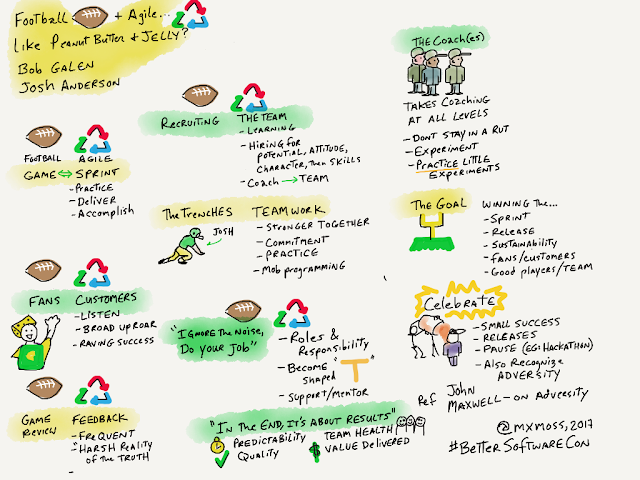 Football + Agile...
Like Peanut Butter + Jelly?
Bob Galen
Josh Anderson
FOOTBALL AGILE
GAME ↔ SPRINT
- Practice
- Deliver
- Accomplish
FANS CUSTOMERS
- LISTEN
- BROAD UPROAR
- RAVING SUCCESS
GAME REVIEW FEEDBACK
- FREQUENT
- "HARSH REALITY
OF THE TRUTH
-
RECRUITING THE TEAM
- LEARNING
- HIRING FOR
POTENTIAL, ATTITUDE,
CHARACTER, THEN SKILLS
- COACH → TEAM
THE TRENCHES TEAMWORK
JOSH
- STRONGER TOGETHER
- COMMITMENT
- PRACTICE
- MOB PROGRAMMING
"IGNORE THE NOISE,
DO YOUR JOB"
- ROLES &
RESPONSIBILITY
- BECOME "T"
SHAPED
- SUPPORT/MENTOR
"IN THE END, IT'S ABOUT RESULTS"
PREDICTABILITY
QUALITY
TEAM HEALTH
$ VALUE DELIVERED
THE COACH(ES)
TAKES COACHING
AT ALL LEVELS
- DON'T STAY IN A RUT
- EXPERIMENT
- PRACTICE LITTLE
EXPERIMENTS
THE GOAL
WINNING THE...
- SPRINT
- RELEASE
- SUSTAINABILITY
- FANS/CUSTOMERS
- GOOD PLAYERS/TEAM
CELEBRATE
- SMALL SUCCESS
- RELEASES
- PAUSE (EG: HACKATHON)
- ALSO RECOGNIZE
ADVERSITY
Ref John
MAXWELL - ON ADVERSITY
@MXMOSS, 2017
#BETTERSOFTWARECON